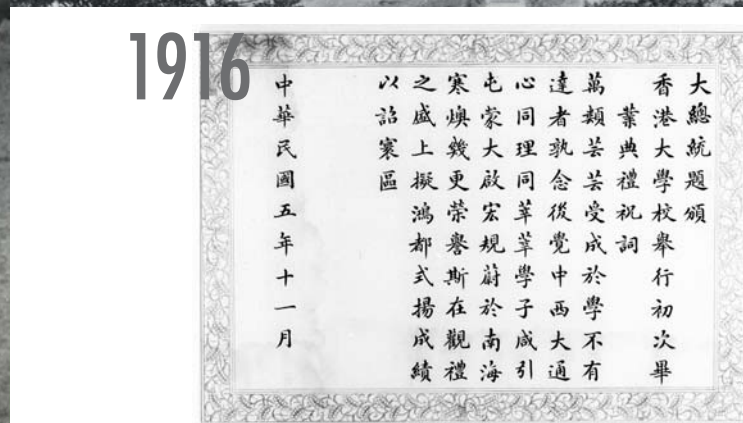 1916
大總統題頒
香港大學校舉行初次畢
業典禮祝詞
萬類芸芸受成於學不有
達者孰念後覺中西大通
心同理同莘莘學子咸引
屯蒙大啟宏規蔚於南海
寒燠幾更榮譽斯在觀禮
之盛上擬鴻都式揚成績
以詔寰區
中華民國五年十一月